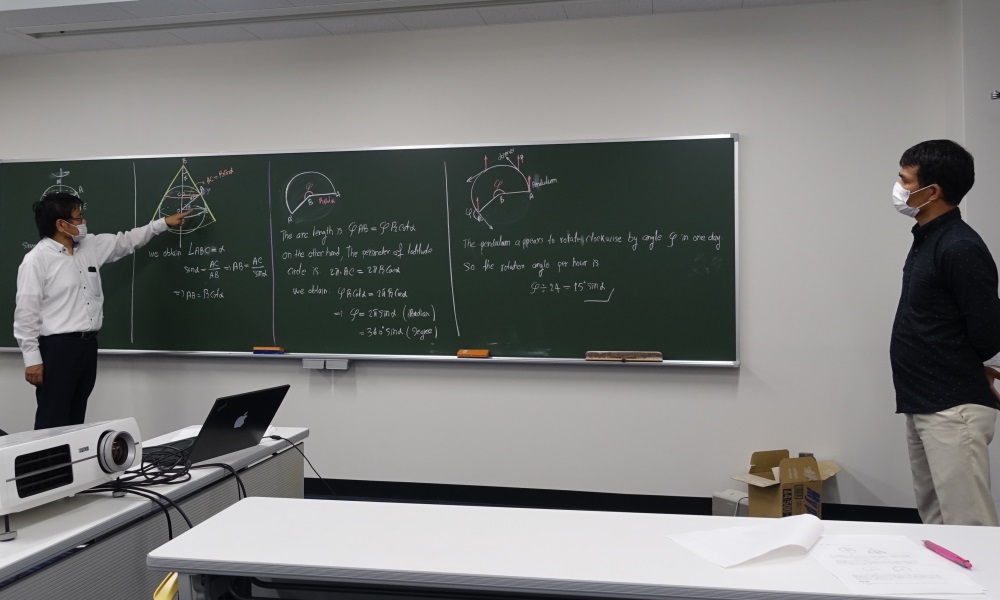 we obtain ∠ABC = α
sinα = AC/AB ⇒ AB = AC/sinα
⇒ AB = R cotα
The arc length is φAB = φR cotα
on the other hand, The perimeter of latitude
circle is 2π·AC = 2πR cosα
we obtain φR cotα = 2πR cosα
⇒ φ = 2π sinα (Radian)
= 360° sinα (Degree)
pendulum
The pendulum appears to rotate clockwise by angle φ in one day
So the rotation angle per hour is
φ ÷ 24 = 15° sinα